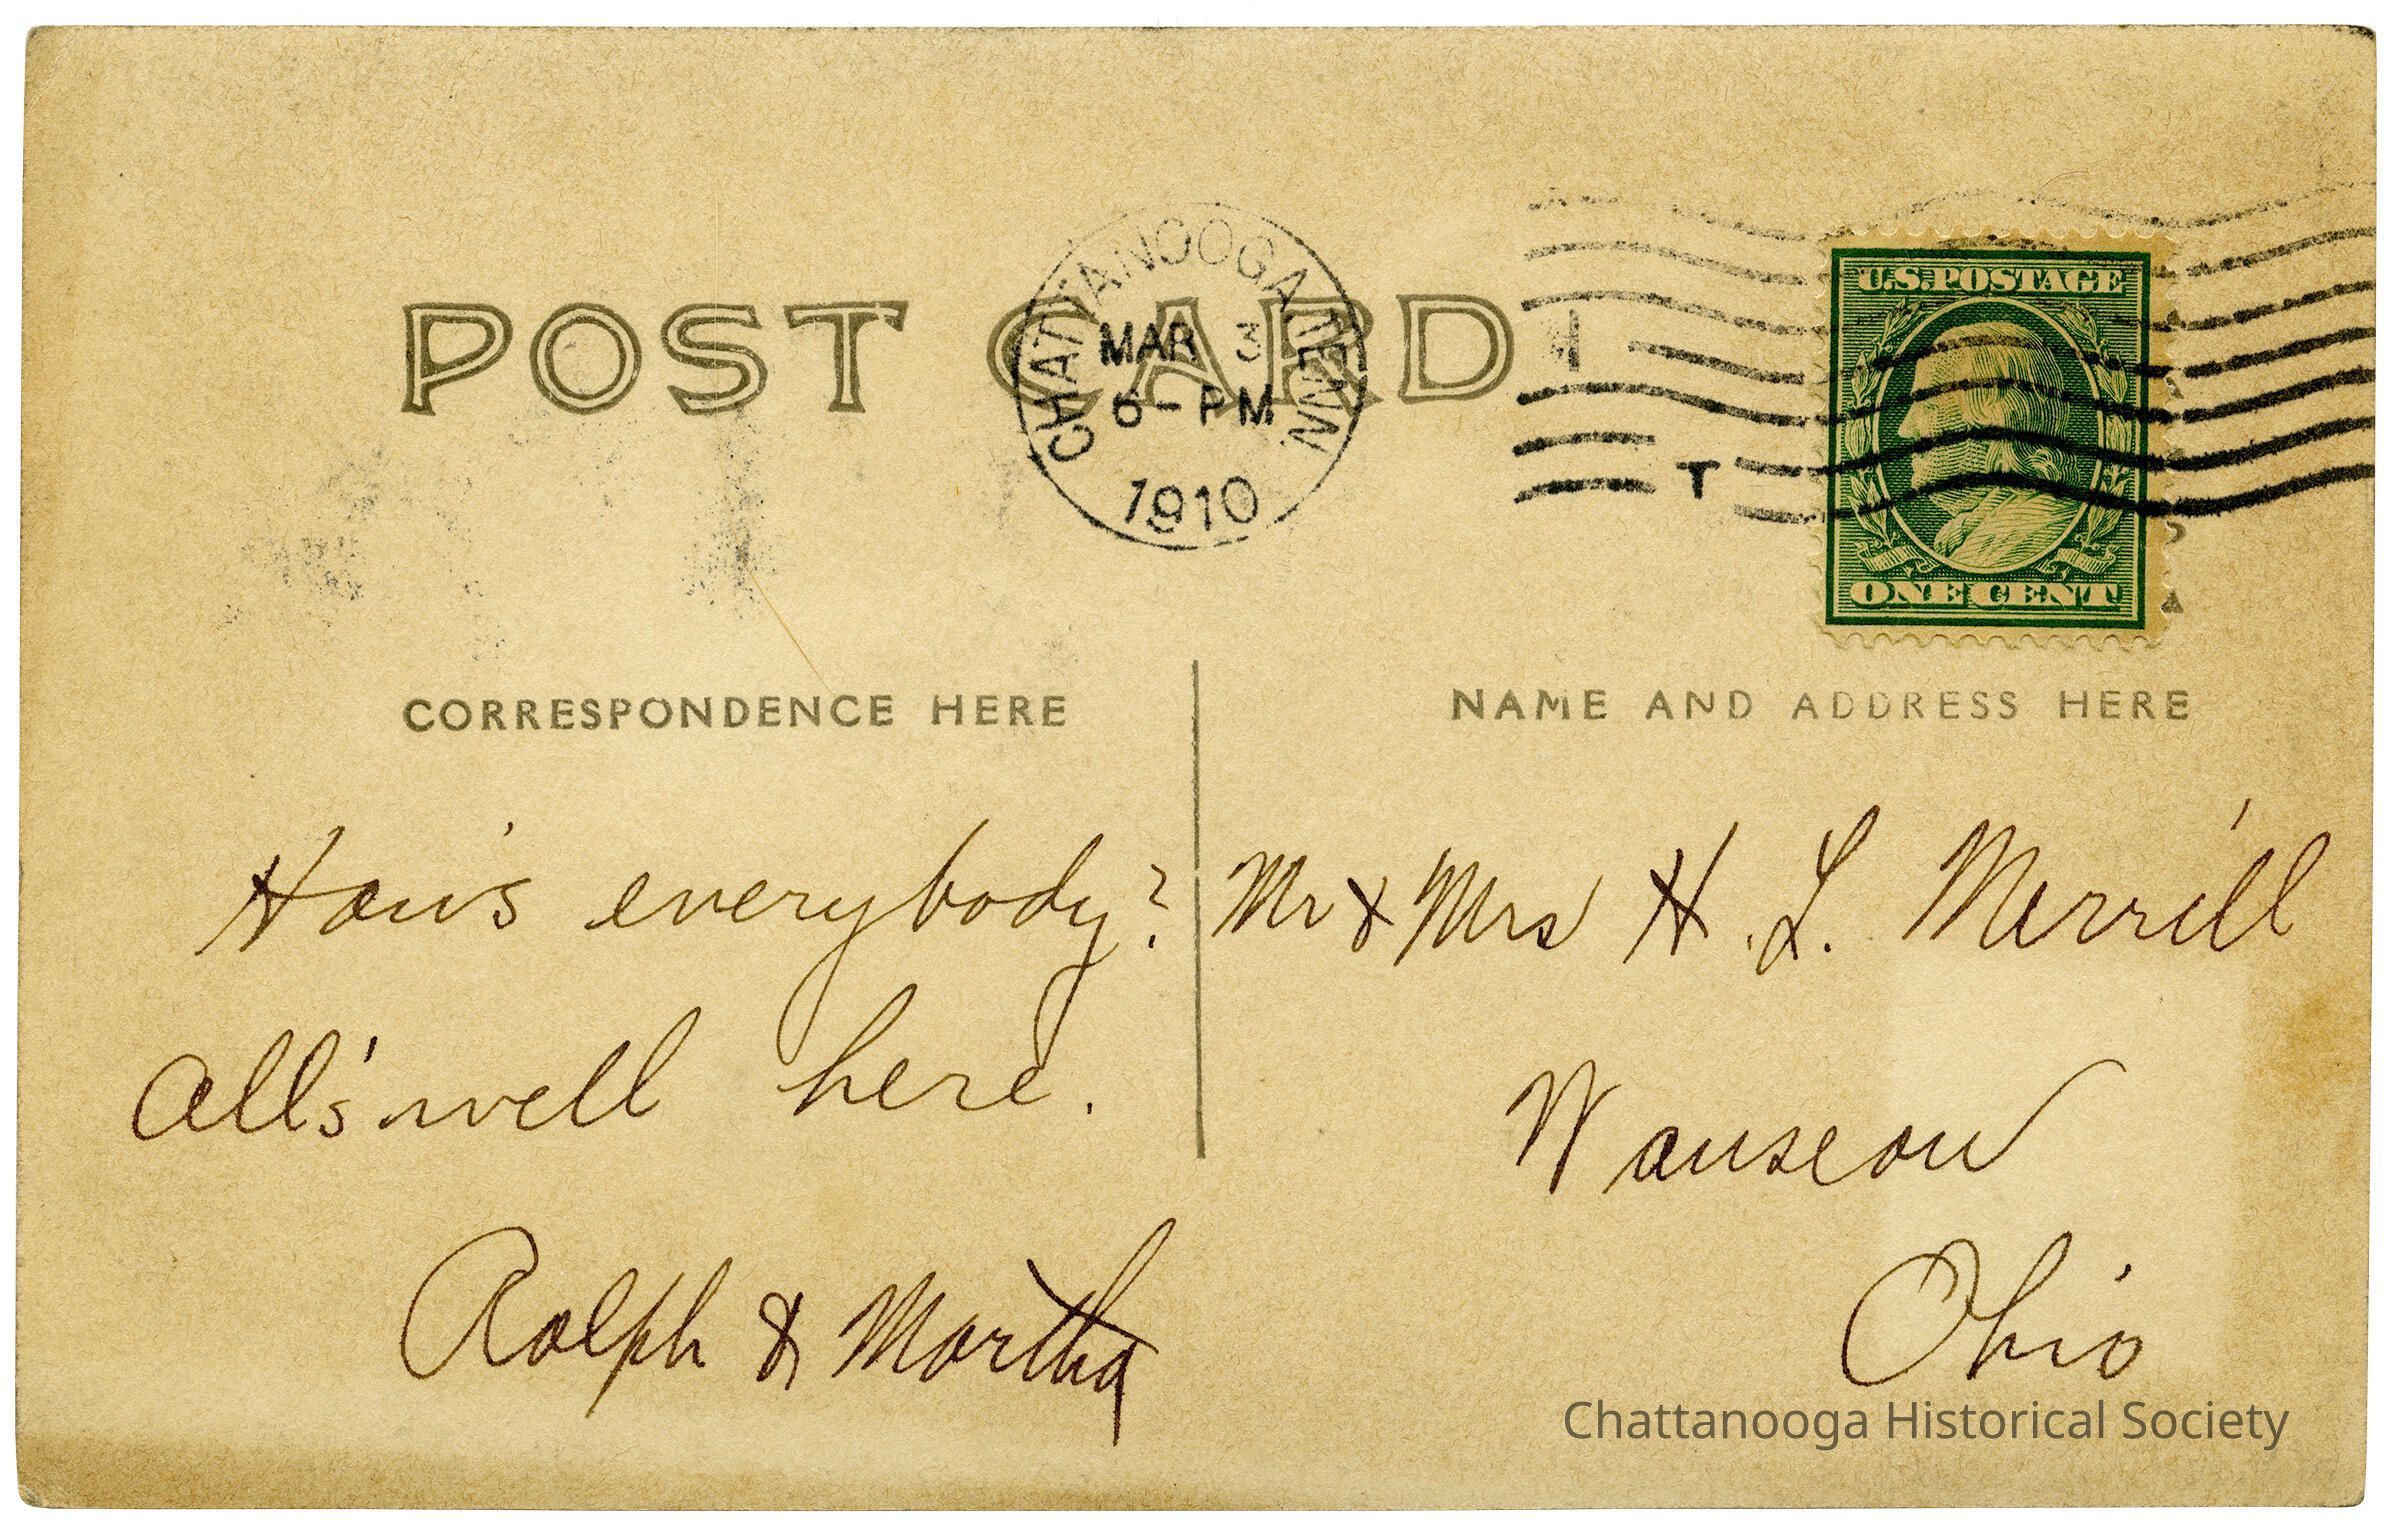 POST CARD
CHATTANOOGA, TENN.
MAR 3
6 - PM
1910
T
U.S. POSTAGE
ONE CENT
CORRESPONDENCE HERE
NAME AND ADDRESS HERE
How's everybody?
All's well here.
Ralph & Martha
Mr & Mrs H. L. Merrill
Wauseon
Ohio
Chattanooga Historical Society